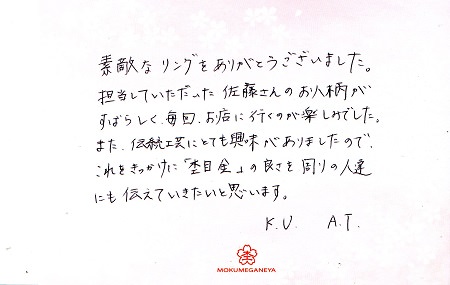 素敵なリングをありがとうございました。
担当していただいた佐藤さんのお人柄が
すばらしく、毎回、お店に行くのが楽しみでした。
また、伝統工芸にとても興味がありましたので、
これをきっかけに「杢目金」の良さを周りの人達
にも伝えていきたいと思います。
K.U. A.T.
MOKUMEGANEYA